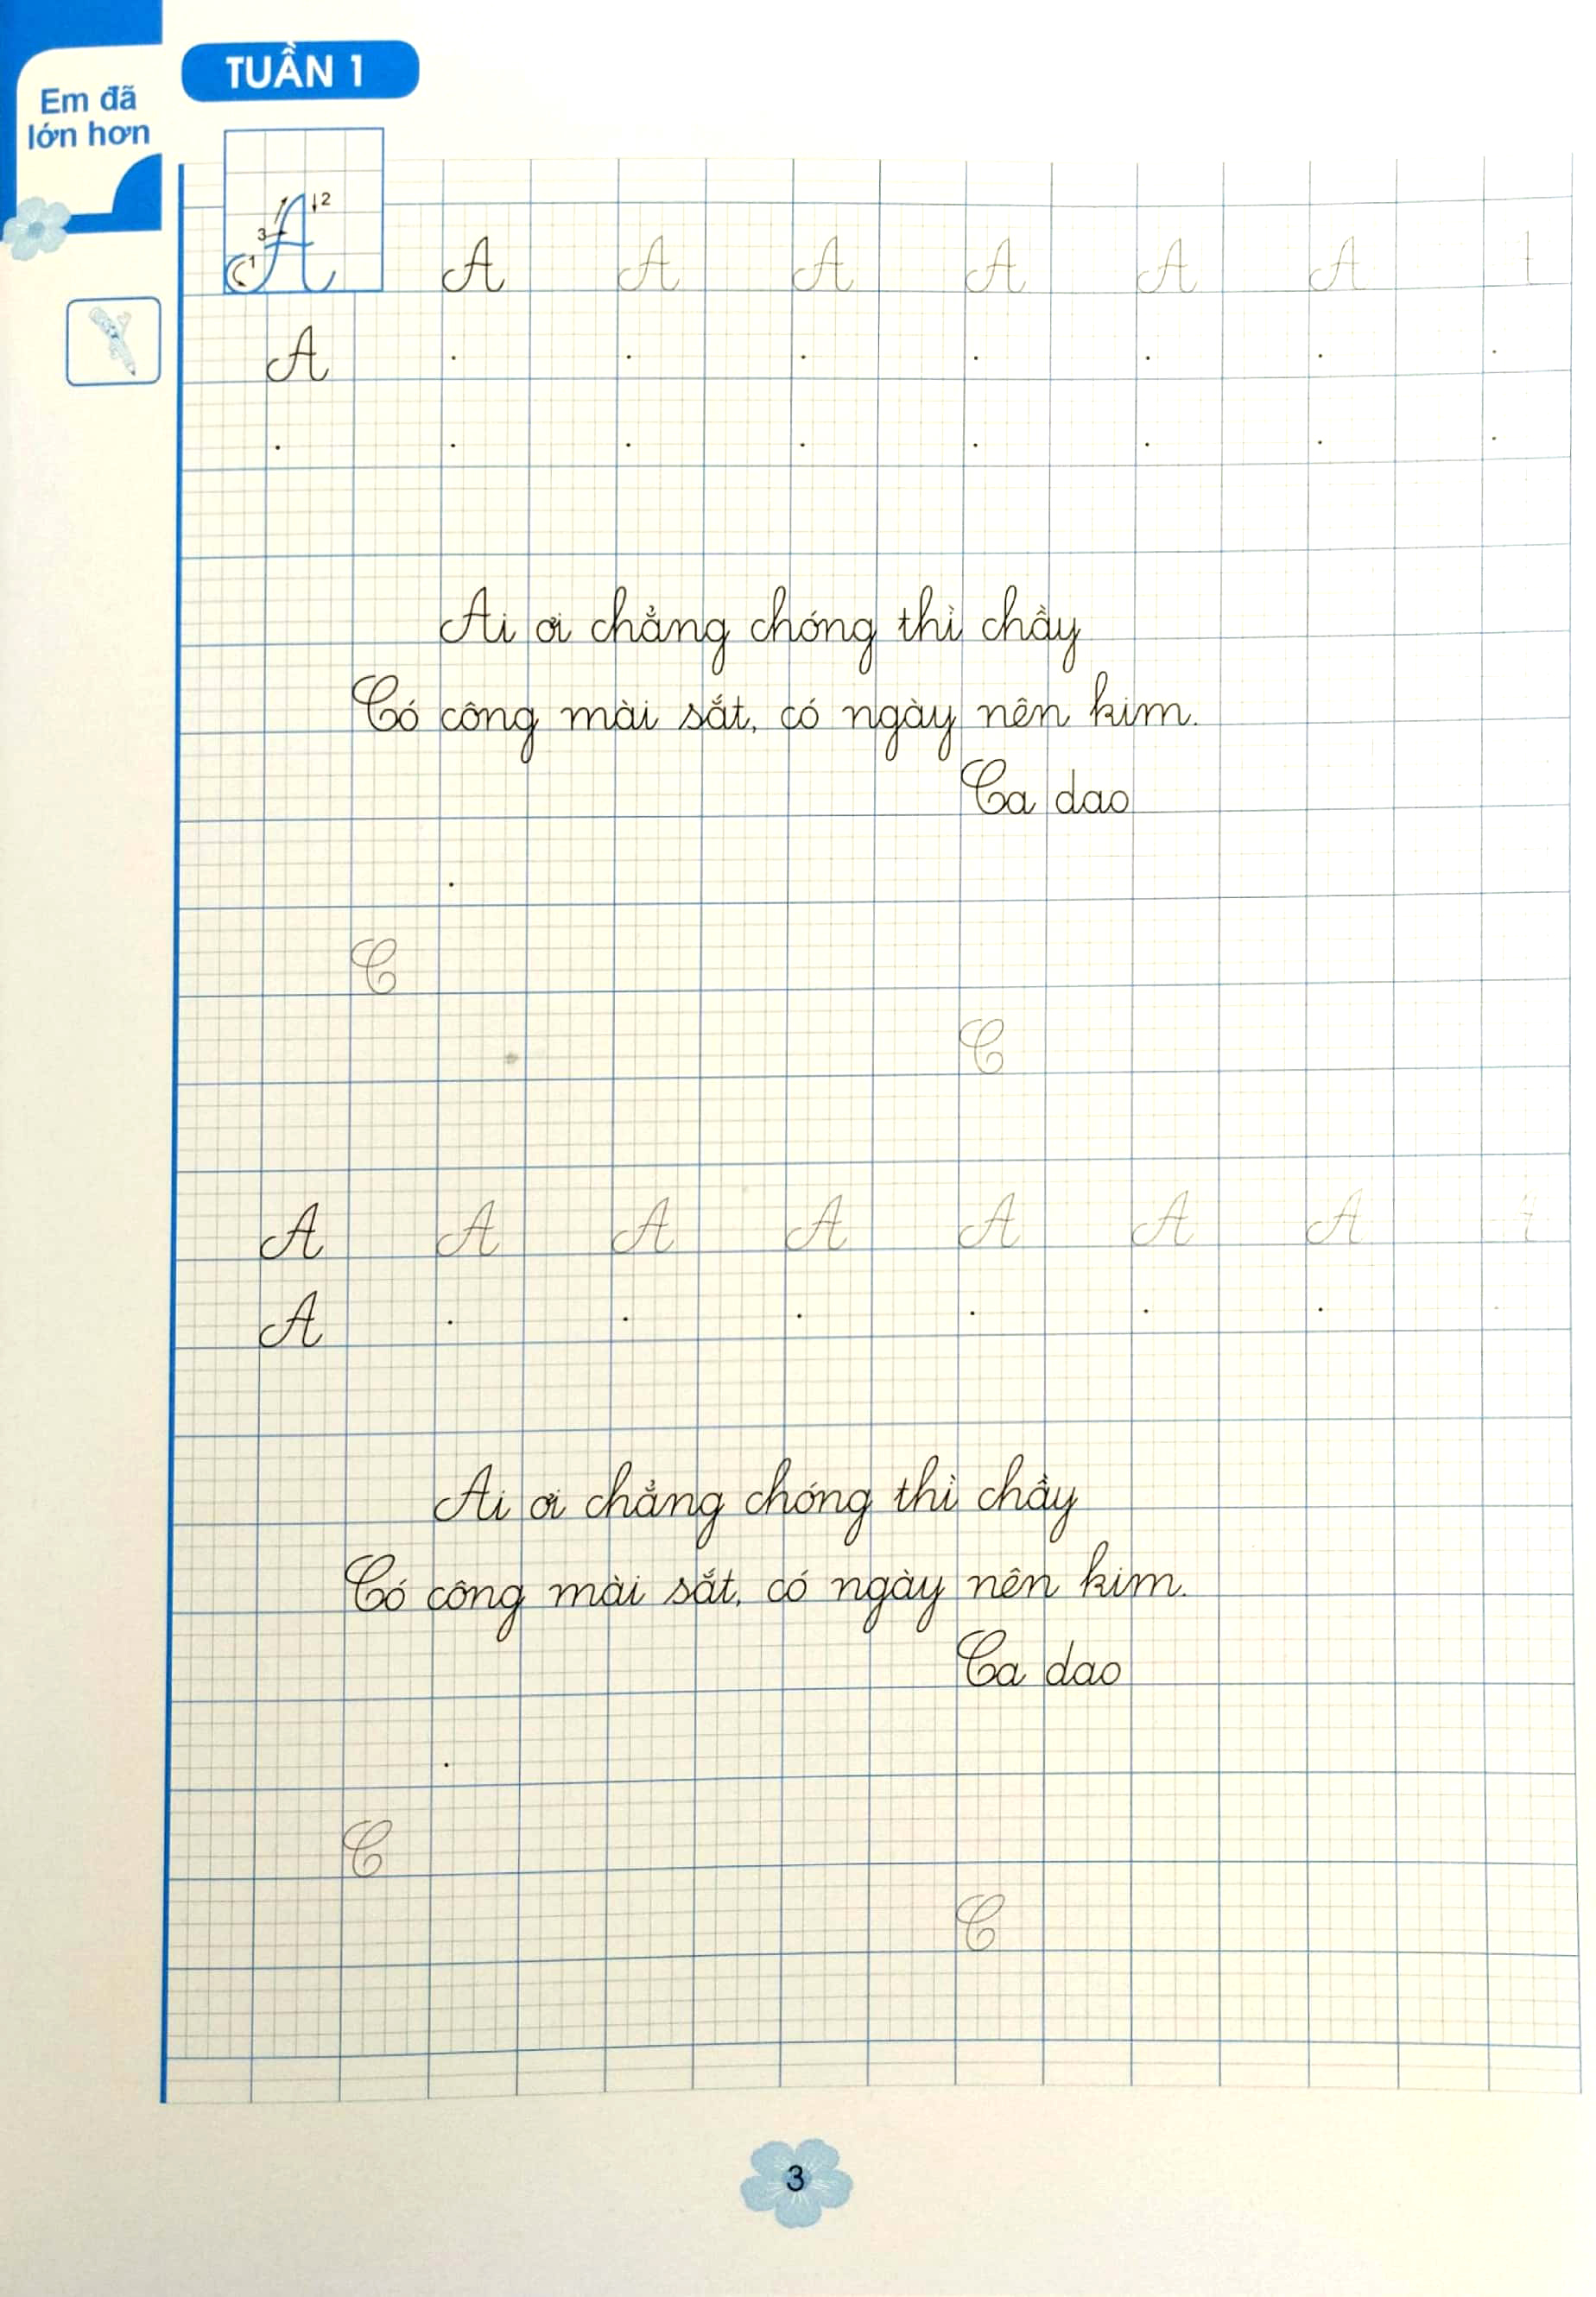 TUẦN 1
Em đã
lớn hơn
2
3
1
A A A A A A A
A
Ai ơi chẳng chóng thì chầy
Có công mài sắt, có ngày nên kim.
Ca dao
C
C
A A A A A A A
A
Ai ơi chẳng chóng thì chầy
Có công mài sắt, có ngày nên kim.
Ca dao
C
C
3